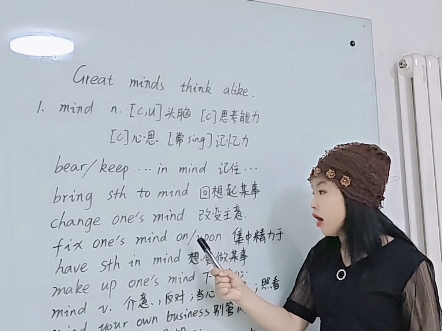 Great minds think alike.
1. mind n. [C,U]头脑 [C]思考能力
[C]心思. [常sing]记忆力
bear/keep ... in mind 记住...
bring sth to mind 回想起某事
change one's mind 改变主意.
fix one's mind on/upon 集中精力于
have sth in mind 想 做某事
make up one's mind 下
mind v. 介意.;反对;当心 ;照看
your own business 别管